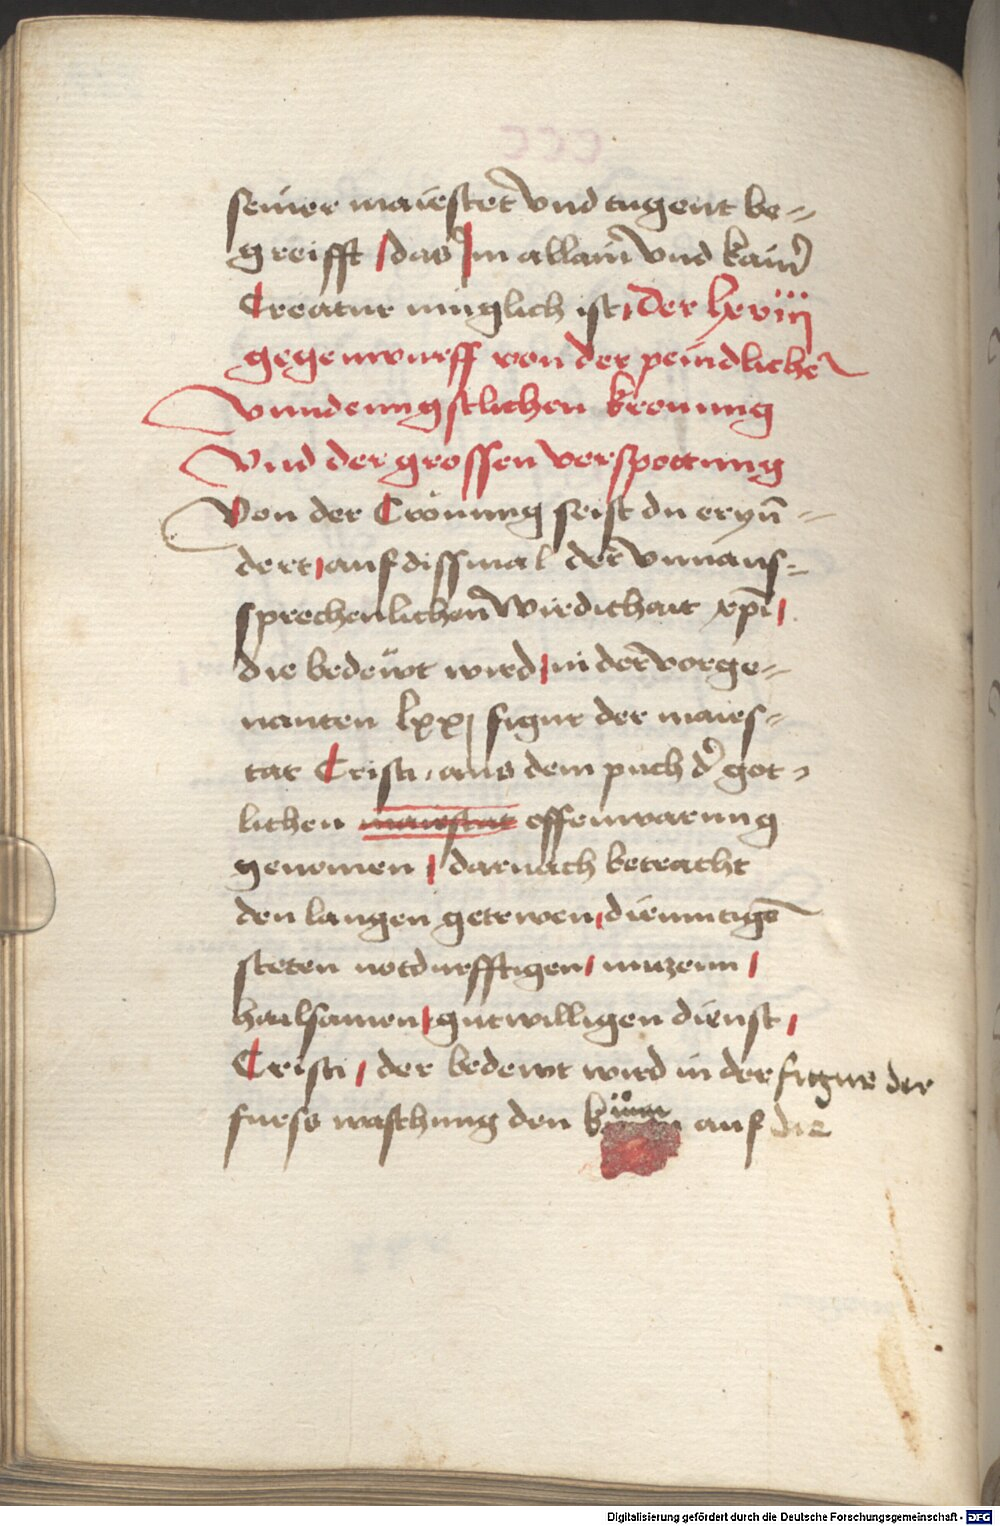 seiner maiestet vnd tugent be-
greifft das Im allain vnd kainer
Creatur muglich ist der lxviij
gegenwurff von der peindlichen
vnnd enngstlichen kronung
Vnd der grossen verspottung
Von der Crönung seist du eryn̄-
dert auf dissmal der vnnaus-
sprechenlichen wirdichait xp̄i
die bedeẅt wird in der vorge-
nanten lxxj figur der maies-
tat Cristi aus dem puch der got-
lichen maiestat offenwarung
genomen darnach betracht
den langen getrewen diemutigē
steten notdurfftigen nuzenn
hailsamen gutwilligen dienst
Cristi der bedewt wird in der figur der
fuess waschung den auf die
Digitalisierung gefördert durch die Deutsche Forschungsgemeinschaft - DFG